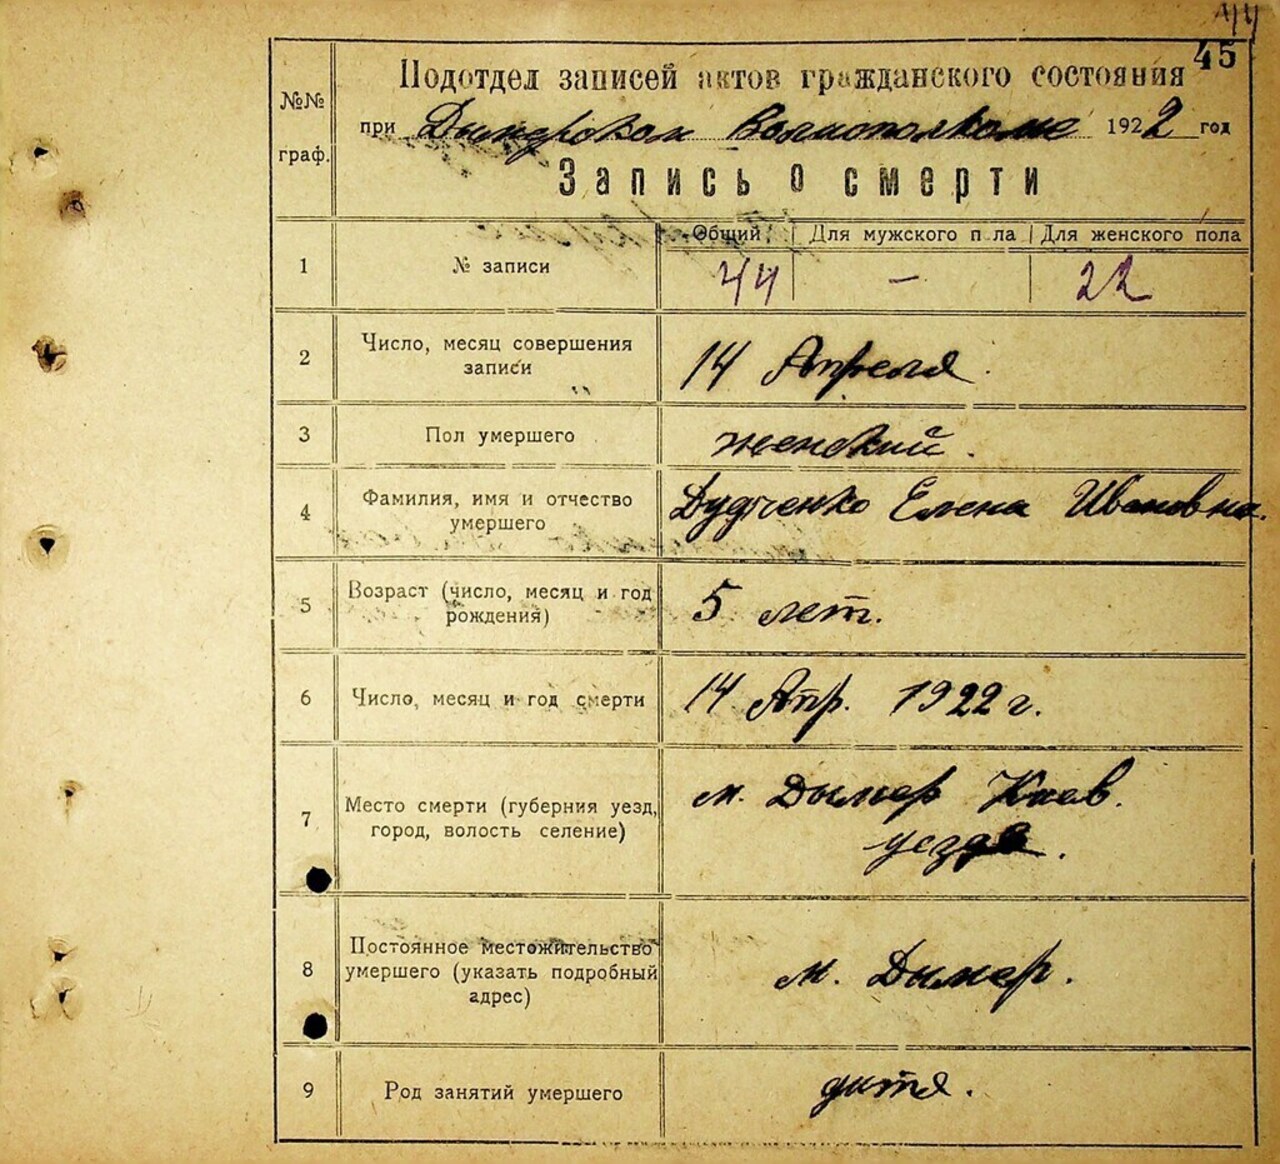 44
45
№№
граф.
Подотдел записей актов гражданского состояния
при Дымерском Волисполкоме 1922 год
Запись о смерти
Общий Для мужского п ла Для женского пола
1 № записи 44 – 22
2 Число, месяц совершения
записи
14 Апреля.
3 Пол умершего женский.
4 Фамилия, имя и отчество
умершего
Дудченко Елена Ивановна.
5 Возраст (число, месяц и год
рождения)
5 лет.
6 Число, месяц и год смерти 14 Апр. 1922 г.
7 Место смерти (губерния уезд,
город, волость селение)
м. Дымер Киев.
уезда.
8 Постоянное местожительство
умершего (указать подробный
адрес)
м. Дымер.
9 Род занятий умершего дитя.